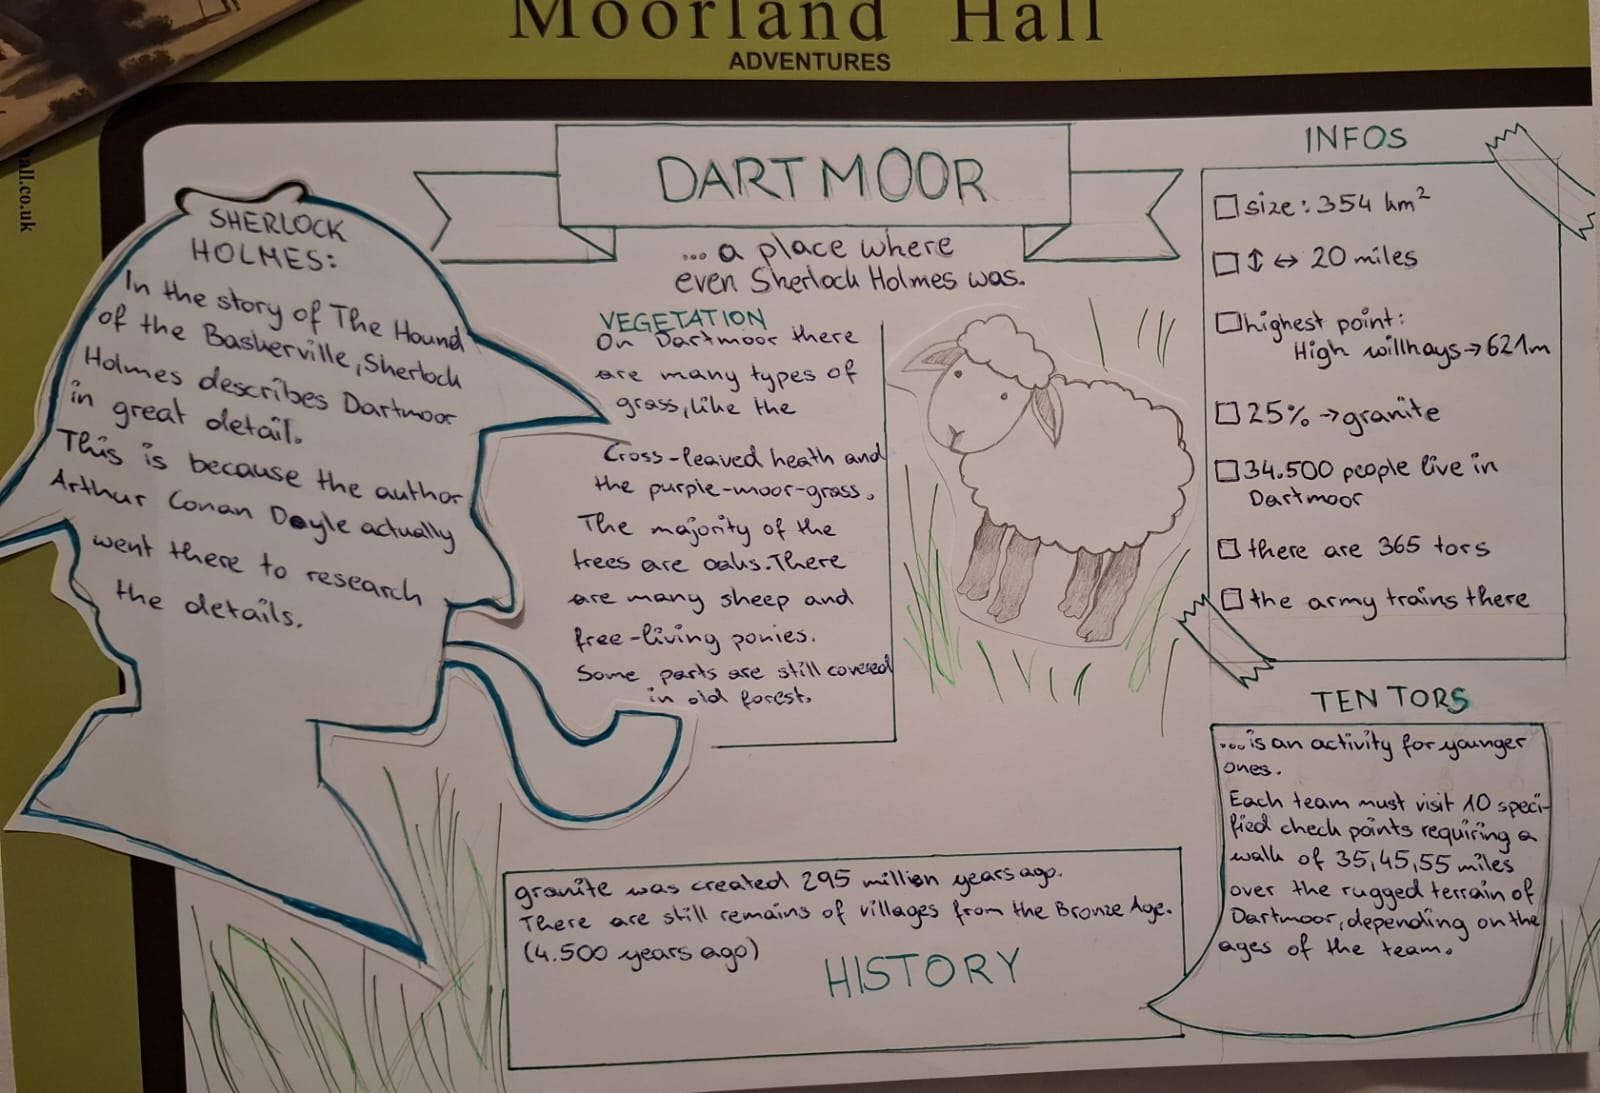 Moorland Hall
ADVENTURES
all.co.uk
DARTMOOR
... a place where
even Sherlock Holmes was.
SHERLOCK
HOLMES:
In the story of The Hound
of the Baskerville, Sherlock
Holmes describes Dartmoor
in great detail.
This is because the author
Arthur Conan Doyle actually
went there to research
the details.
VEGETATION
On Dartmoor there
are many types of
grass, like the
Cross-leaved heath and
the purple-moor-grass.
The majority of the
trees are oaks. There
are many sheep and
free-living ponies.
Some parts are still covered
in old forest.
INFOS
☐ size: 354 km²
☐ ↕ ↔ 20 miles
☐ highest point:
High willhays → 621m
☐ 25% → granite
☐ 34.500 people live in
Dartmoor
☐ there are 365 tors
☐ the army trains there
TEN TORS
... is an activity for younger
ones.
Each team must visit 10 speci-
fied check points requiring a
walk of 35, 45, 55 miles
over the rugged terrain of
Dartmoor, depending on the
ages of the team.
granite was created 295 million years ago.
There are still remains of villages from the Bronze Age.
(4.500 years ago)
HISTORY